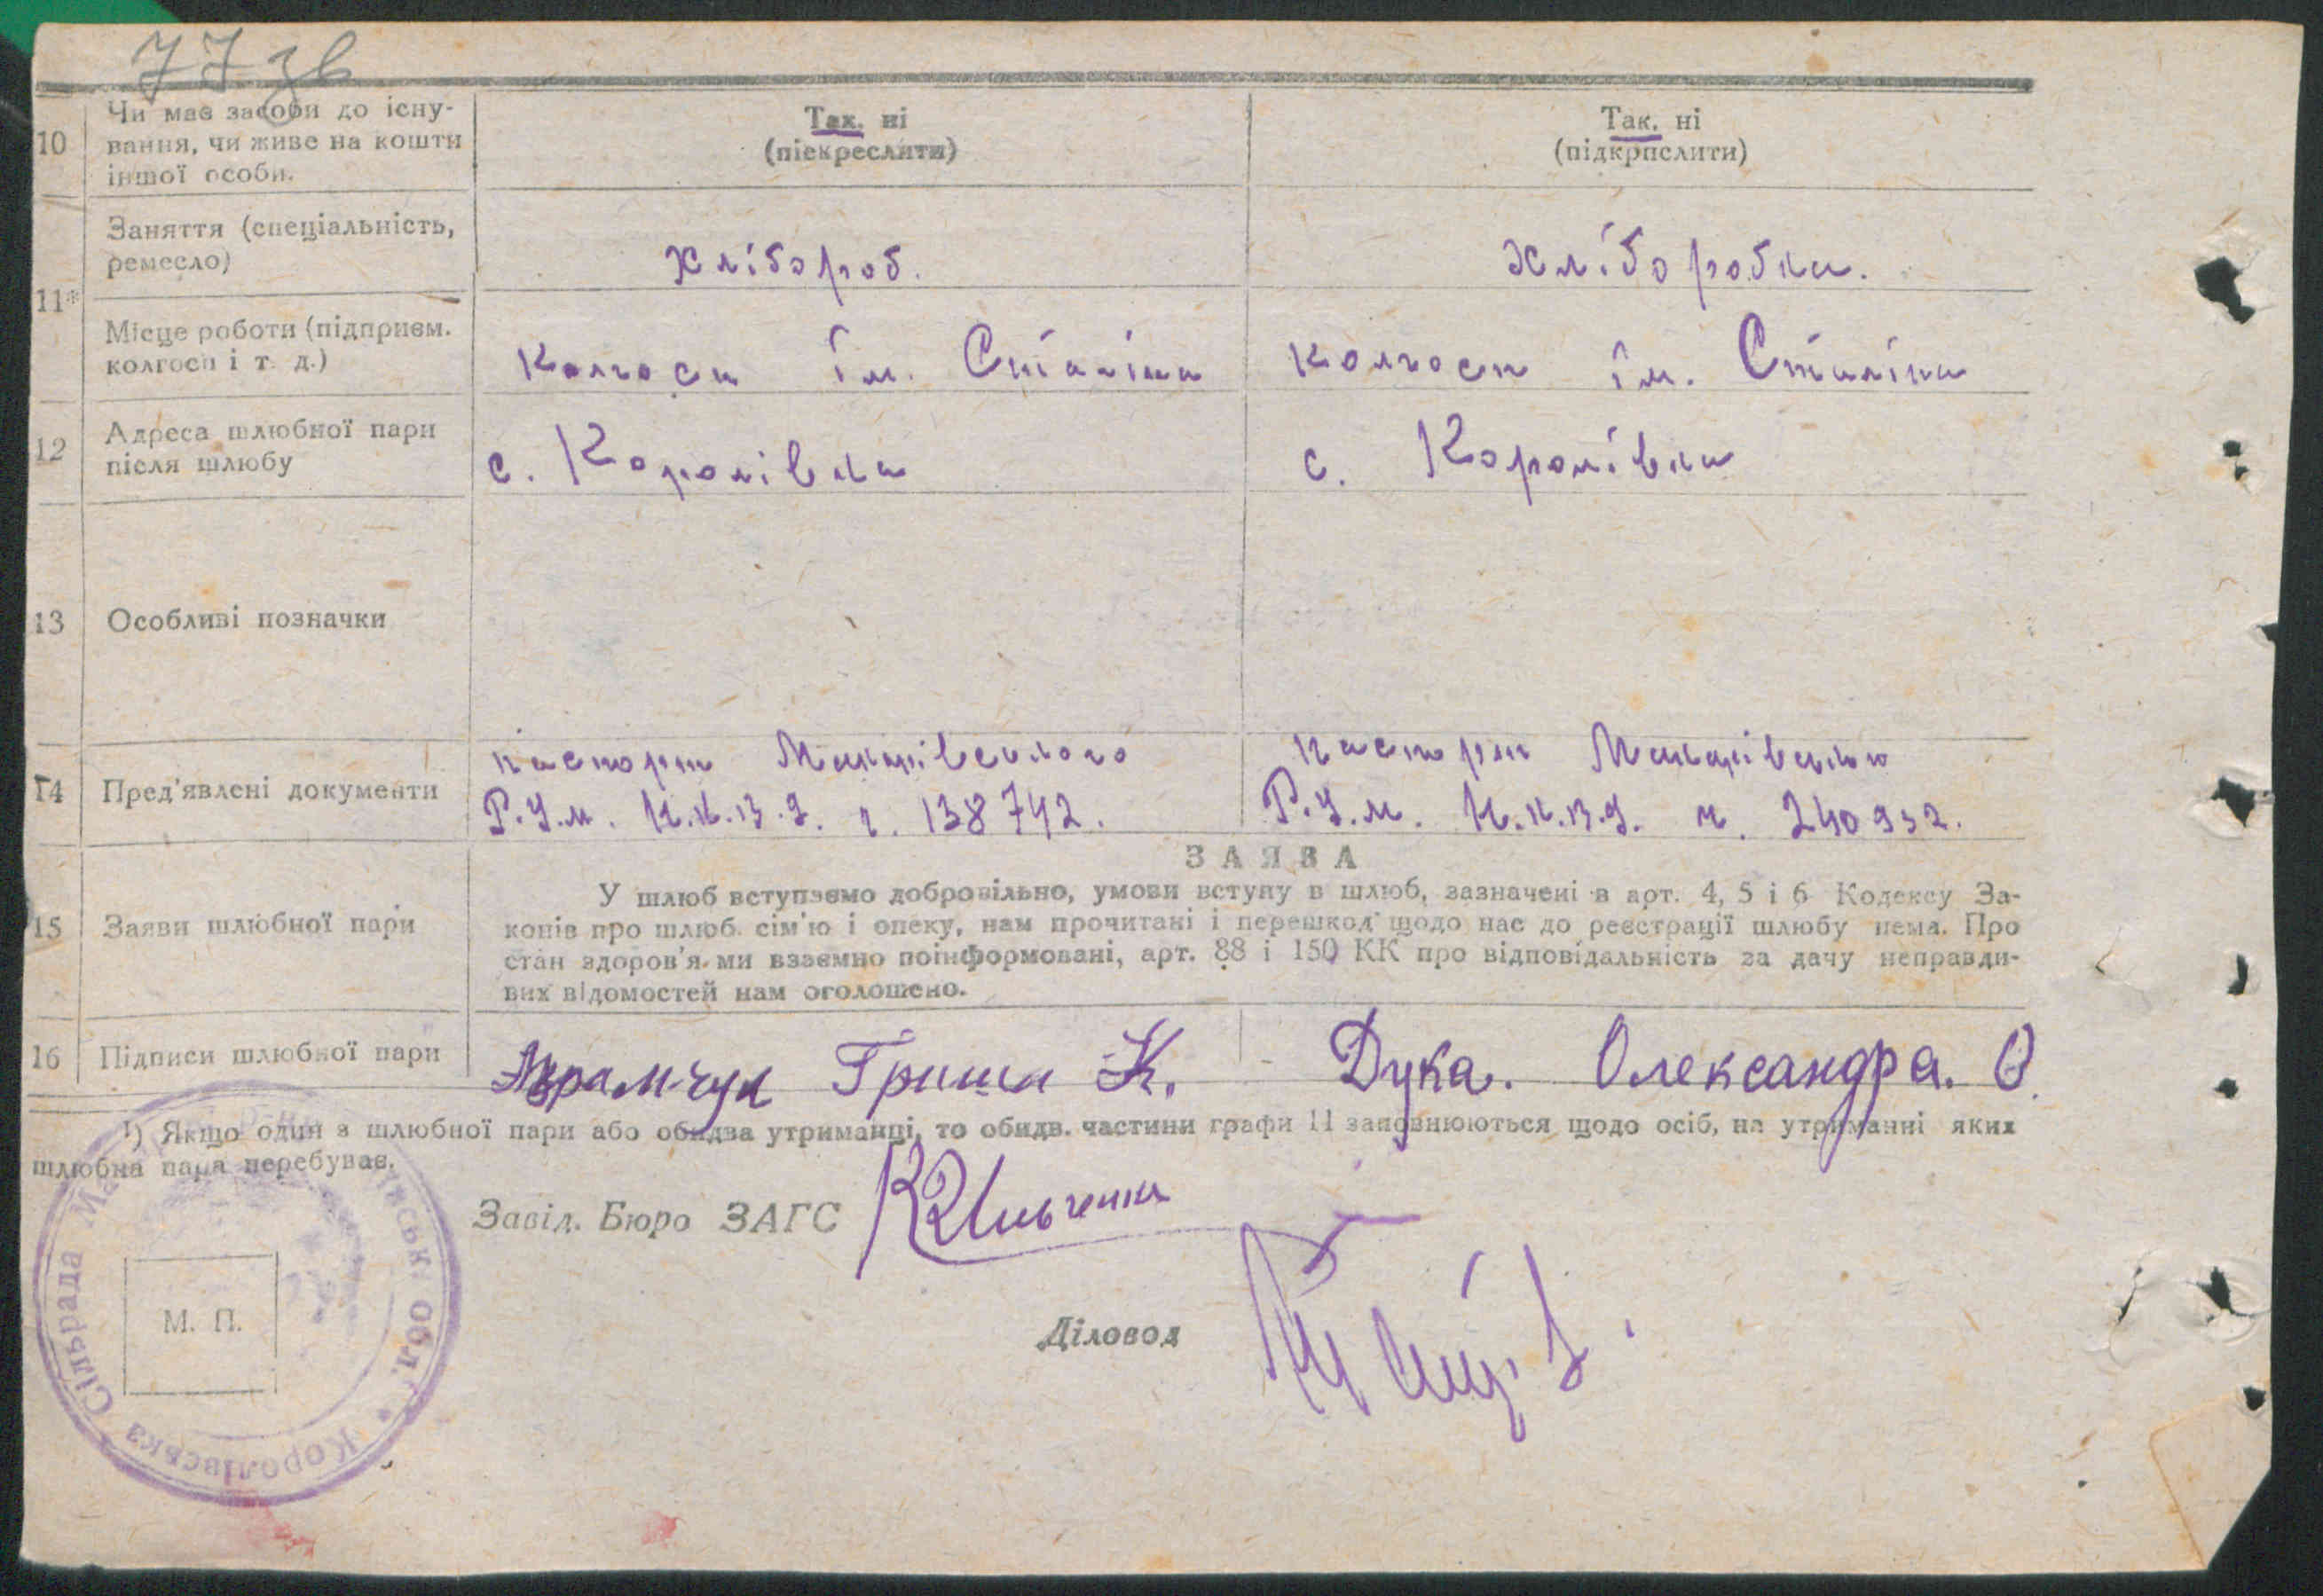 77 зв
10 Чи має засоби до існу-
вання, чи живе на кошти
іншої особи.
Так. ні
(піекреслити)
Так. ні
(підкрпслити)
11*
Заняття (спеціальність,
ремесло)
хлібороб.
хліборобка.
Місце роботи (підприєм.
колгосп і т. д.)
колгосп ім. Сталіна
колгосп ім. Сталіна
12 Адреса шлюбної пари
після шлюбу
с. Королівка
с. Королівка
13 Особливі позначки
14 Пред'явлені документи
паспорт Макарівського
Р.У.м. Н.К.В.С. ч. 138742.
паспорт Макарівського
Р.У.м. Н.К.В.С. ч. 240932.
15 Заяви шлюбної пари
ЗАЯВА
У шлюб вступаємо добровільно, умови вступу в шлюб, зазначені в арт. 4, 5 і 6 Кодексу За-
конів про шлюб. сім'ю і опеку, нам прочитані і перешкод щодо нас до реєстрації шлюбу нема. Про
стан здоров'я ми взаємно поінформовані, арт. 88 і 150 КК про відповідальність за дачу неправди-
вих відомостей нам оголошено.
16 Підписи шлюбної пари
Абрамчук Гриша К.
Дука. Олександра. О.
¹) Якщо один з шлюбної пари або обидва утриманці, то обидв. частини графи 11 заповнюються щодо осіб, на утриманні яких
шлюбна пара перебуває.
Завід. Бюро ЗАГС
Діловод
М. П.
Королівська Сільрада